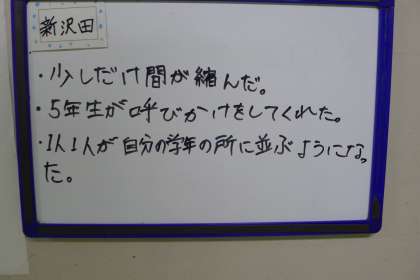 新沢田
・少しだけ間が縮んだ。
・5年生が呼びかけをしてくれた。
・1人1人が自分の学年の所に並ぶようになっ
た。